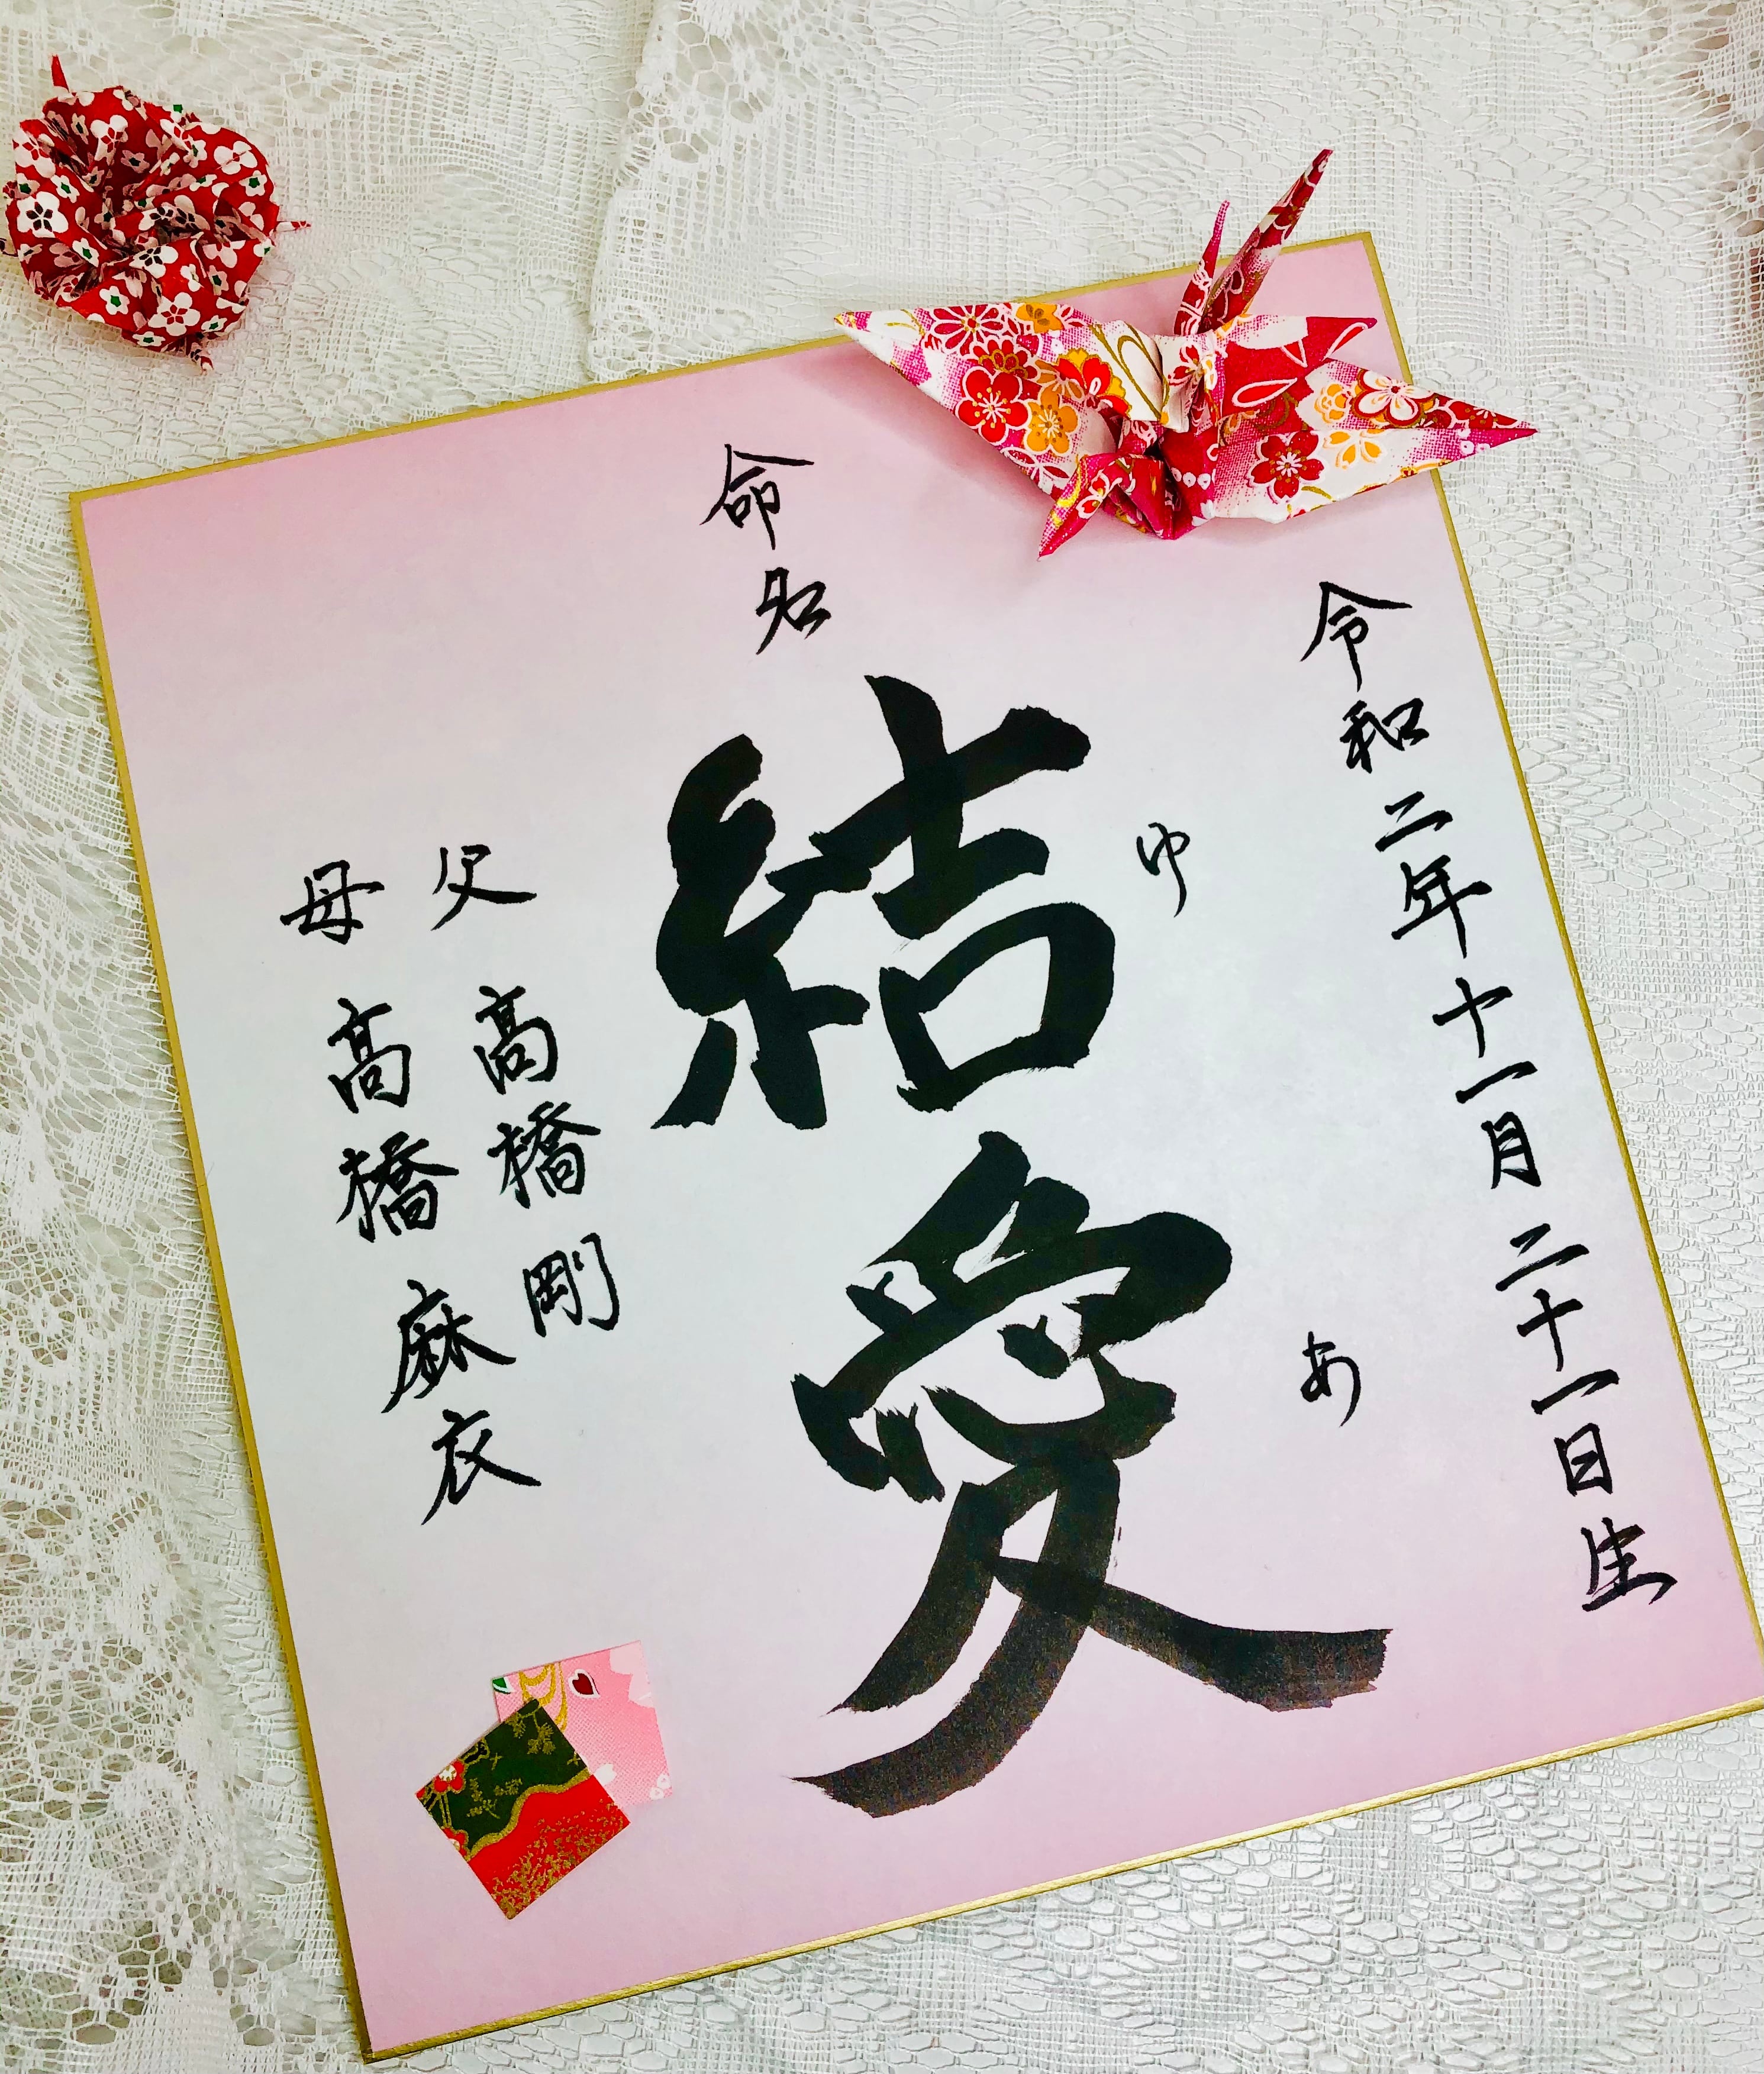 令和二年十一月二十一日生
命名
結愛
ゆあ
父 髙橋剛
母 髙橋麻衣